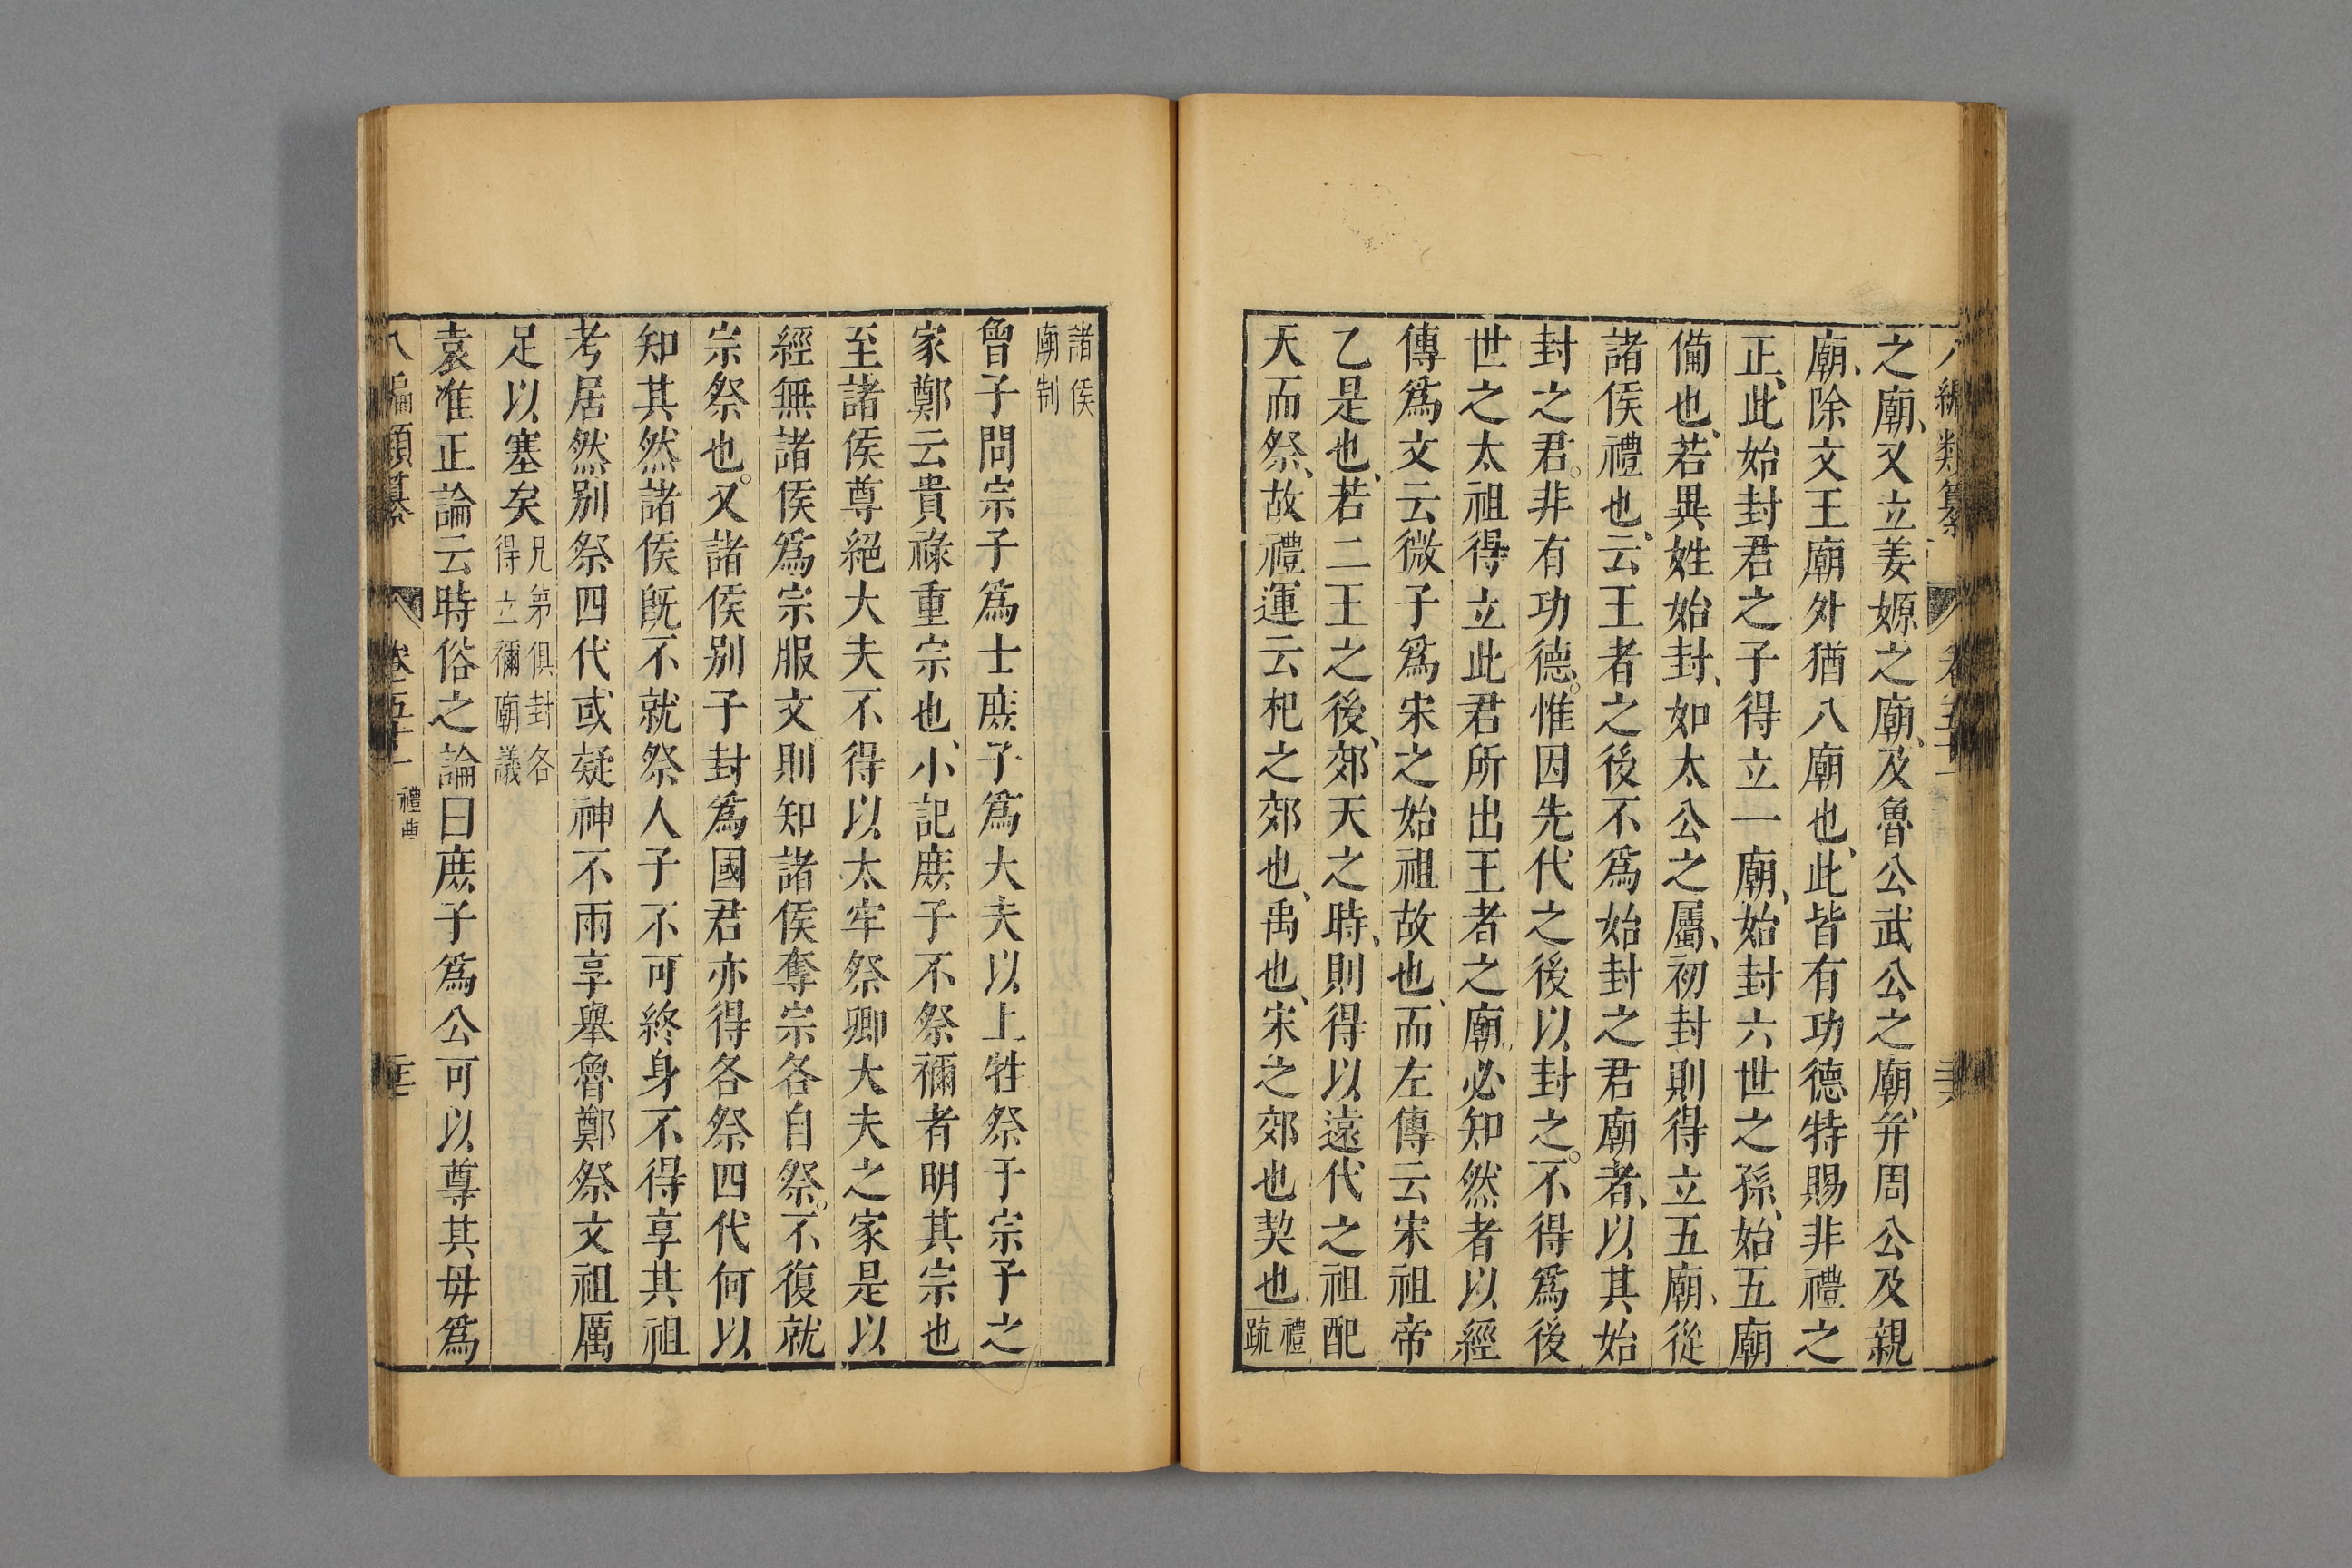 之廟又立姜嫄之廟及魯公武公之廟并周公及親
廟除文王廟外猶八廟也此皆有功德特賜非禮之
正此始封君之子得立一廟始封六世之孫始五廟
備也若異姓始封如太公之屬初封則得立五廟從
諸侯禮也云王者之後不爲始封之君廟者以其始
封之君非有功德惟因先代之後以封之不得爲後
世之太祖得立此君所出王者之廟必知然者以經
傳爲文云微子爲宋之始祖故也而左傳云宋祖帝
乙是也若二王之後郊天之時則得以遠代之祖配
天而祭故禮運云杞之郊也禹也宋之郊也契也禮疏
諸侯廟制
曾子問宗子爲士庶子爲大夫以上牲祭于宗子之
家鄭云貴祿重宗也小記庶子不祭禰者明其宗也
至諸侯尊絕大夫不得以太牢祭卿大夫之家是以
經無諸侯爲宗服文則知諸侯奪宗各自祭不復就
宗祭也又諸侯别子封爲國君亦得各祭四代何以
知其然諸侯既不就祭人子不可終身不得享其祖
考居然别祭四代或疑神不兩享舉魯鄭祭文祖厲
足以塞矣兄弟俱封各得立禰廟議
袁准正論云時俗之論曰庶子爲公可以尊其毋爲
八編類纂 卷五十一 禮曲